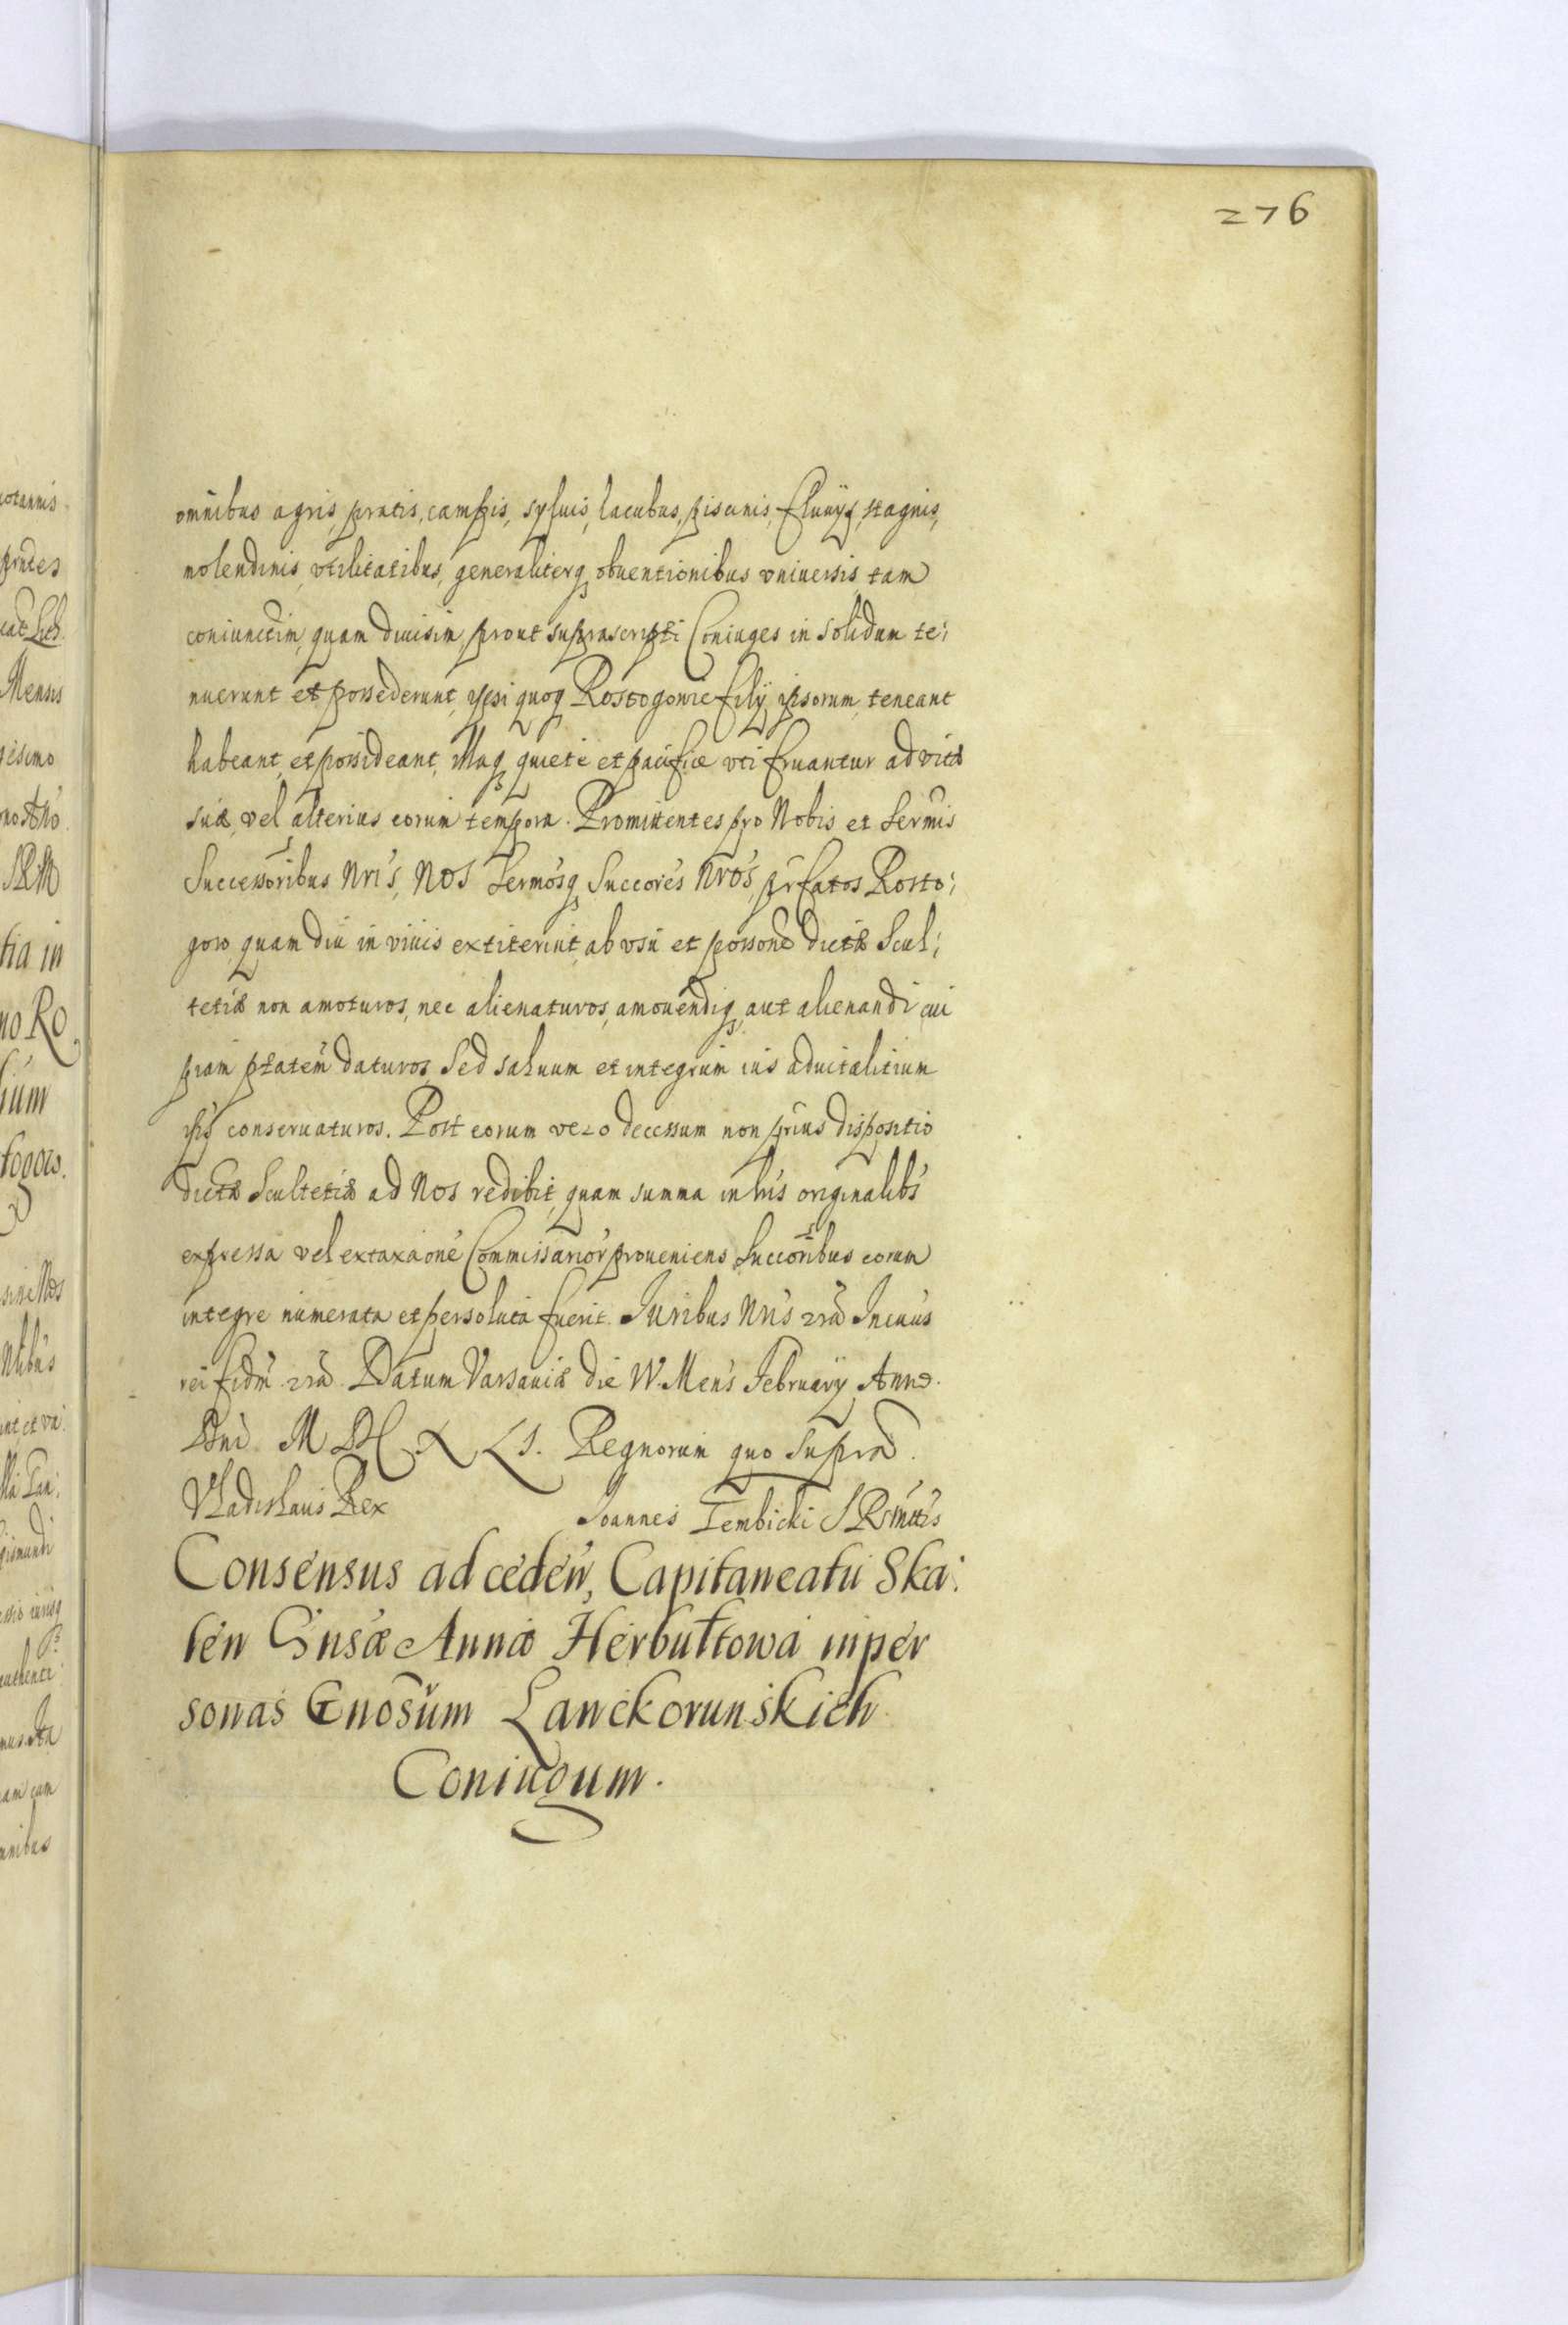 276
omnibus agris, pratis, campis, syluis, lacubus, piscinis, fluuijs, stagnis,
molendinis, vtilitatibus, generaliterq obuentionibus vniuersis, tam
coniunctim, quam diuisim, prout suprascripti Coniuges in solidum te:
nuerunt et possederunt, ipsi quoq Rostogowie filij ipsorum, teneant
habeant, et possideant, illaq quiete et pacifice vti fruantur ad vitæ
suæ, vel alterius eorum tempora. Promittentes pro Nobis et Sermis
Successoribus Nris, Nos Sermosq Succores Nros, prfatos Rosto:
gow quam diu in viuis extiterint, ab vsu et possone dictæ Scul:
tetiæ non amoturos, nec alienaturos, amouendiq aut alienandi cui
piam ptatem daturos, Sed saluum et integrum ius aduitalitium
ipis conseruaturos. Post eorum vero decessum non prius dispositio
dictæ Scultetiæ ad Nos redibit, quam summa in lris originalibs
expressa vel ex taxaone Commissarior proueniens Succoribus eorum
integre numerata et persoluta fuerit. Juribus Nris
rei fidm Datum Varsauiæ die IV. Mens February Anno.
Dni M DC X LI. Regnorum quo supra.
Vladislaus Rex
Joannes Gembicki S R Mttis
Consensus ad ceden, Capitaneatu Ska:
len Gnsæ Annæ Herbultowa in per
sonas Gnosum Lanckorunskich
Coniugum.